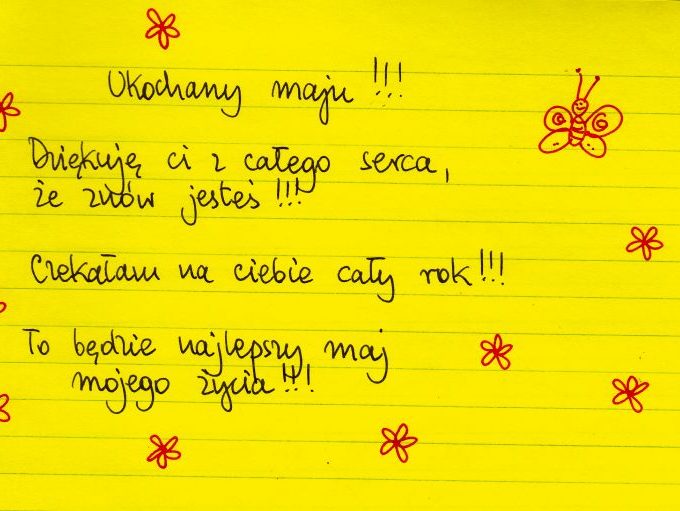 Ukochany maju !!!
Dziękuję ci z całego serca,
że znów jesteś !!!
Czekałam na ciebie cały rok !!!
To będzie najlepszy maj
mojego życia !!!